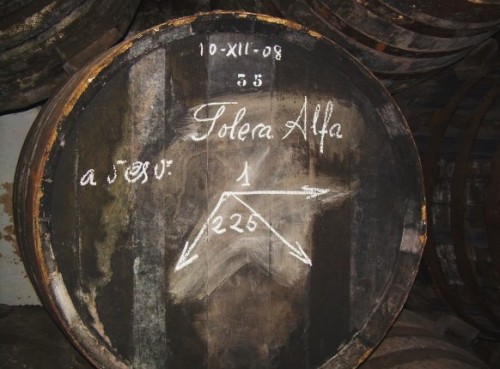 10-XII-08
55
Solera Alfa
1
225